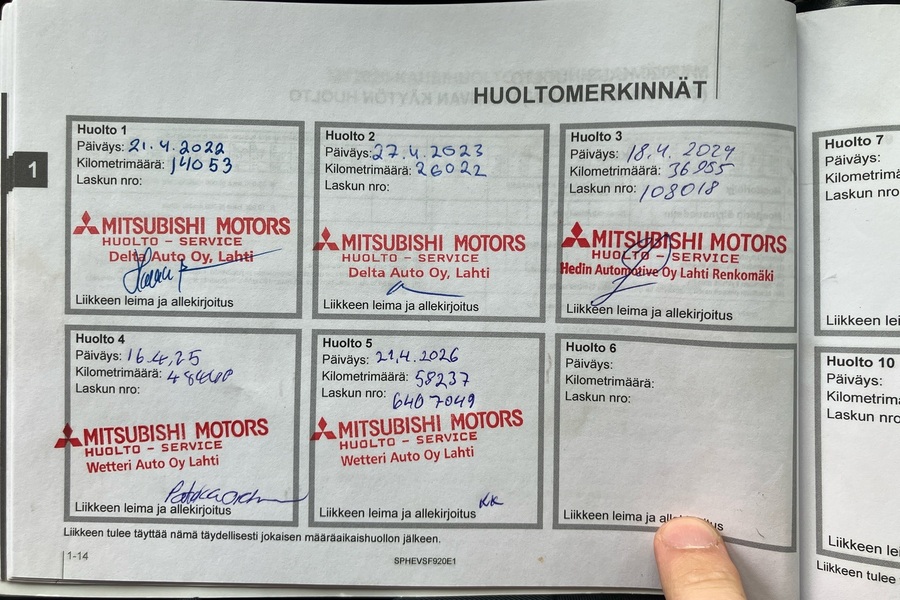 HUOLTOMERKINNÄT
1
Huolto 1
Päiväys: 21.4.2022
Kilometrimäärä: 14053
Laskun nro:
MITSUBISHI MOTORS
HUOLTO – SERVICE
Delta Auto Oy, Lahti
Liikkeen leima ja allekirjoitus
Huolto 2
Päiväys: 27.4.2023
Kilometrimäärä: 26022
Laskun nro:
MITSUBISHI MOTORS
HUOLTO – SERVICE
Delta Auto Oy, Lahti
Liikkeen leima ja allekirjoitus
Huolto 3
Päiväys: 18.4. 2024
Kilometrimäärä: 36955
Laskun nro:
108018
MITSUBISHI MOTORS
HUOLTO – SERVICE
Hedin Automotive Oy Lahti Renkomäki
Liikkeen leima ja allekirjoitus
Huolto 4
Päiväys: 16.4,25
Kilometrimäärä:
Laskun nro:
MITSUBISHI MOTORS
HUOLTO – SERVICE
Wetteri Auto Oy Lahti
Liikkeen leima ja allekirjoitus
Huolto 5
Päiväys: 21.4.2026
Kilometrimäärä: 58237
Laskun nro: 6407049
MITSUBISHI MOTORS
HUOLTO – SERVICE
Wetteri Auto Oy Lahti
Liikkeen leima ja allekirjoitus KK
Huolto 6
Päiväys:
Kilometrimäärä:
Laskun nro:
Liikkeen leima ja
Liikkeen tulee täyttää nämä täydellisesti jokaisen määräaikaishuollon jälkeen.
1-14
SPHEVSF920E1
Huolto 7
Päiväys:
Kilometrimä
Laskun nro
Liikkeen lei
Huolto 10
Päiväys:
Kilometrimä
Laskun nro
Liikkeen lei
Liikkeen tulee